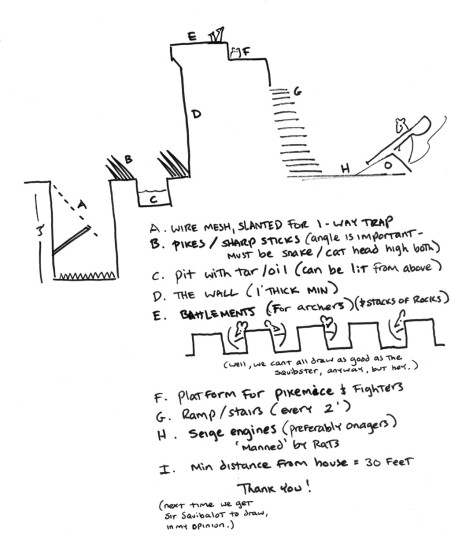 E
F
G
D
B
H
A
C
3'
A. WIRE MESH, SLANTED FOR 1-WAY TRAP
B. PIKES / SHARP STICKS (angle is important-
MUST BE SNAKE / CAT HEAD HIGH BOTH)
C. pit with tar/oil (can be lit from above)
D. THE WALL (1' THICK MIN)
E. BATTLEMENTS (For archers) (& STACKS OF ROCKS)
(well, we cant all draw as good as the
Squibster, anyway, but hey.)
F. Platform for pikemice & Fighters
G. Ramp/stairs (every 2')
H. Seige engines (preferably onagers)
'manned' by Rats
I. Min distance from house = 30 Feet
Thank you!
(next time we get
Sir Squibalot to draw,
in my opinion.)